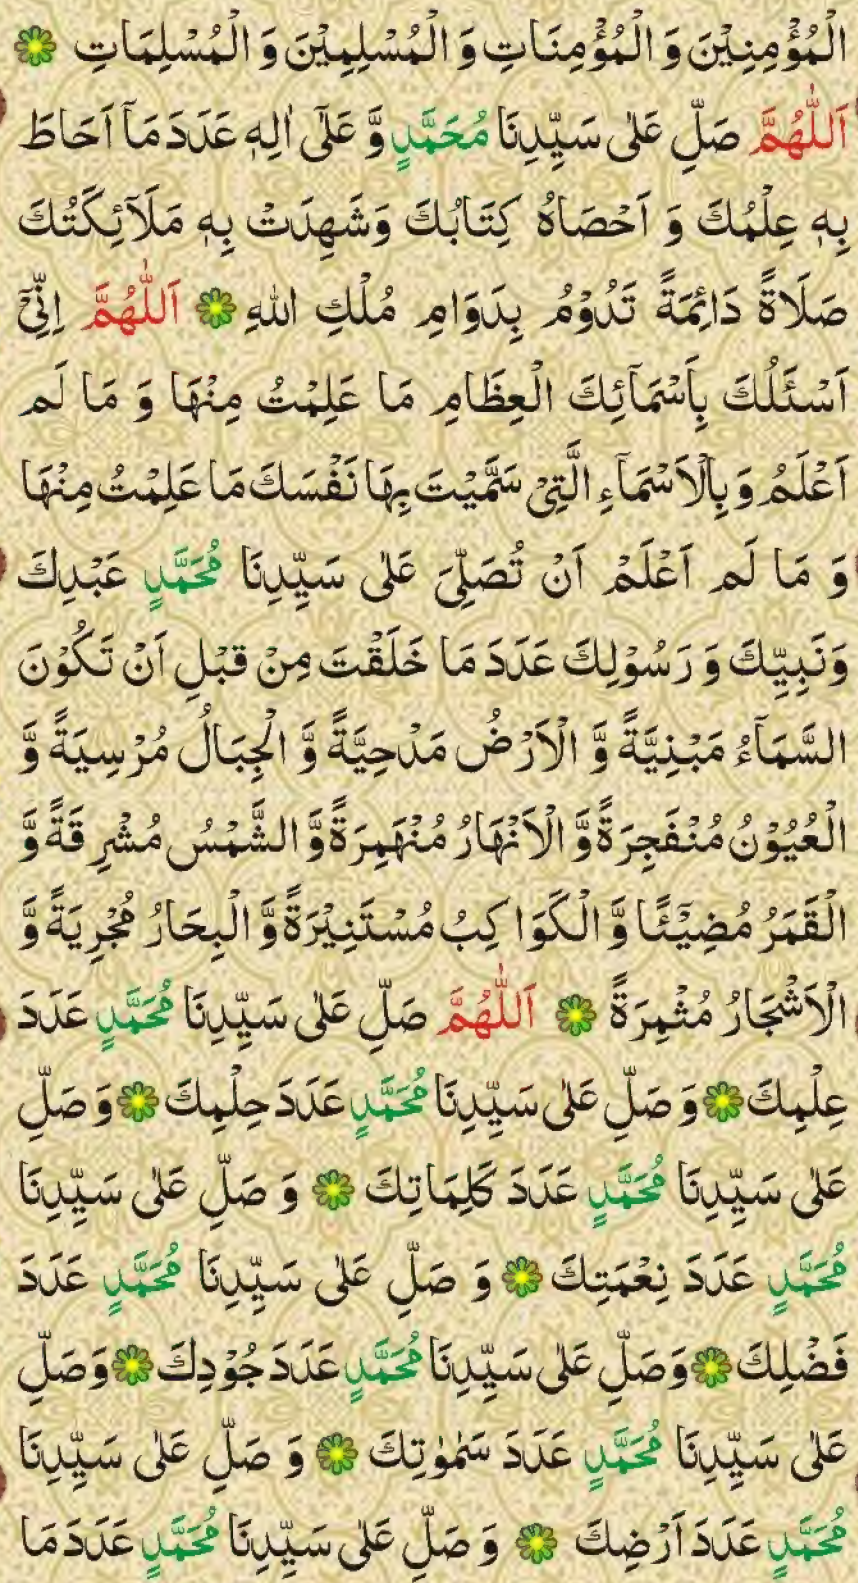 الْمُؤْمِنِيْنَ وَ الْمُؤْمِنَاتِ وَ الْمُسْلِمِيْنَ وَ الْمُسْلِمَاتِ
اَللّٰهُمَّ صَلِّ عَلٰى سَيِّدِنَا مُحَمَّدٍ وَّ عَلٰٓى اٰلِهٖ عَدَدَ مَآ اَحَاطَ
بِهٖ عِلْمُكَ وَ اَحْصَاهُ كِتَابُكَ وَشَهِدَتْ بِهٖ مَلَآئِكَتُكَ
صَلَاةً دَائِمَةً تَدُوْمُ بِدَوَامِ مُلْكِ اللهِ اَللّٰهُمَّ اِنِّيْٓ
اَسْئَلُكَ بِاَسْمَآئِكَ الْعِظَامِ مَا عَلِمْتُ مِنْهَا وَ مَا لَم
اَعْلَمُ وَ بِالْاَسْمَآءِ الَّتِيْ سَمَّيْتَ بِهَا نَفْسَكَ مَا عَلِمْتُ مِنْهَا
وَ مَا لَم اَعْلَمْ اَنْ تُصَلِّيَ عَلٰى سَيِّدِنَا مُحَمَّدٍ عَبْدِكَ
وَنَبِيِّكَ وَ رَسُوْلِكَ عَدَدَ مَا خَلَقْتَ مِنْ قَبْلِ اَنْ تَكُوْنَ
السَّمَآءُ مَبْنِيَّةً وَّ الْاَرْضُ مَدْحِيَّةً وَّ الْجِبَالُ مُرْسِيَةً وَّ
الْعُيُوْنُ مُنْفَجِرَةً وَّ الْاَنْهَارُ مُنْهَمِرَةً وَّ الشَّمْسُ مُشْرِقَةً وَّ
الْقَمَرُ مُضِيْٓئًا وَّ الْكَوَاكِبُ مُسْتَنِيْرَةً وَّ الْبِحَارُ مُجْرِيَةً وَّ
الْاَشْجَارُ مُثْمِرَةً اَللّٰهُمَّ صَلِّ عَلٰى سَيِّدِنَا مُحَمَّدٍ عَدَدَ
عِلْمِكَ وَ صَلِّ عَلٰى سَيِّدِنَا مُحَمَّدٍ عَدَدَ حِلْمِكَ وَ صَلِّ
عَلٰى سَيِّدِنَا مُحَمَّدٍ عَدَدَ كَلِمَاتِكَ وَ صَلِّ عَلٰى سَيِّدِنَا
مُحَمَّدٍ عَدَدَ نِعْمَتِكَ وَ صَلِّ عَلٰى سَيِّدِنَا مُحَمَّدٍ عَدَدَ
فَضْلِكَ وَصَلِّ عَلٰى سَيِّدِنَا مُحَمَّدٍ عَدَدَ جُوْدِكَ وَصَلِّ
عَلٰى سَيِّدِنَا مُحَمَّدٍ عَدَدَ سَمٰوٰتِكَ وَ صَلِّ عَلٰى سَيِّدِنَا
مُحَمَّدٍ عَدَدَ اَرْضِكَ وَ صَلِّ عَلٰى سَيِّدِنَا مُحَمَّدٍ عَدَدَ مَا